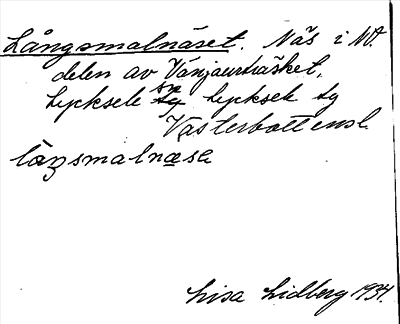 Långsmalnäset. Näs i NV.
delen av Vänjaurträsket,
Lycksele sn Lycksele tg
Västerbottensl.
låŋsmalnæsa
Lisa Lidberg 1934.